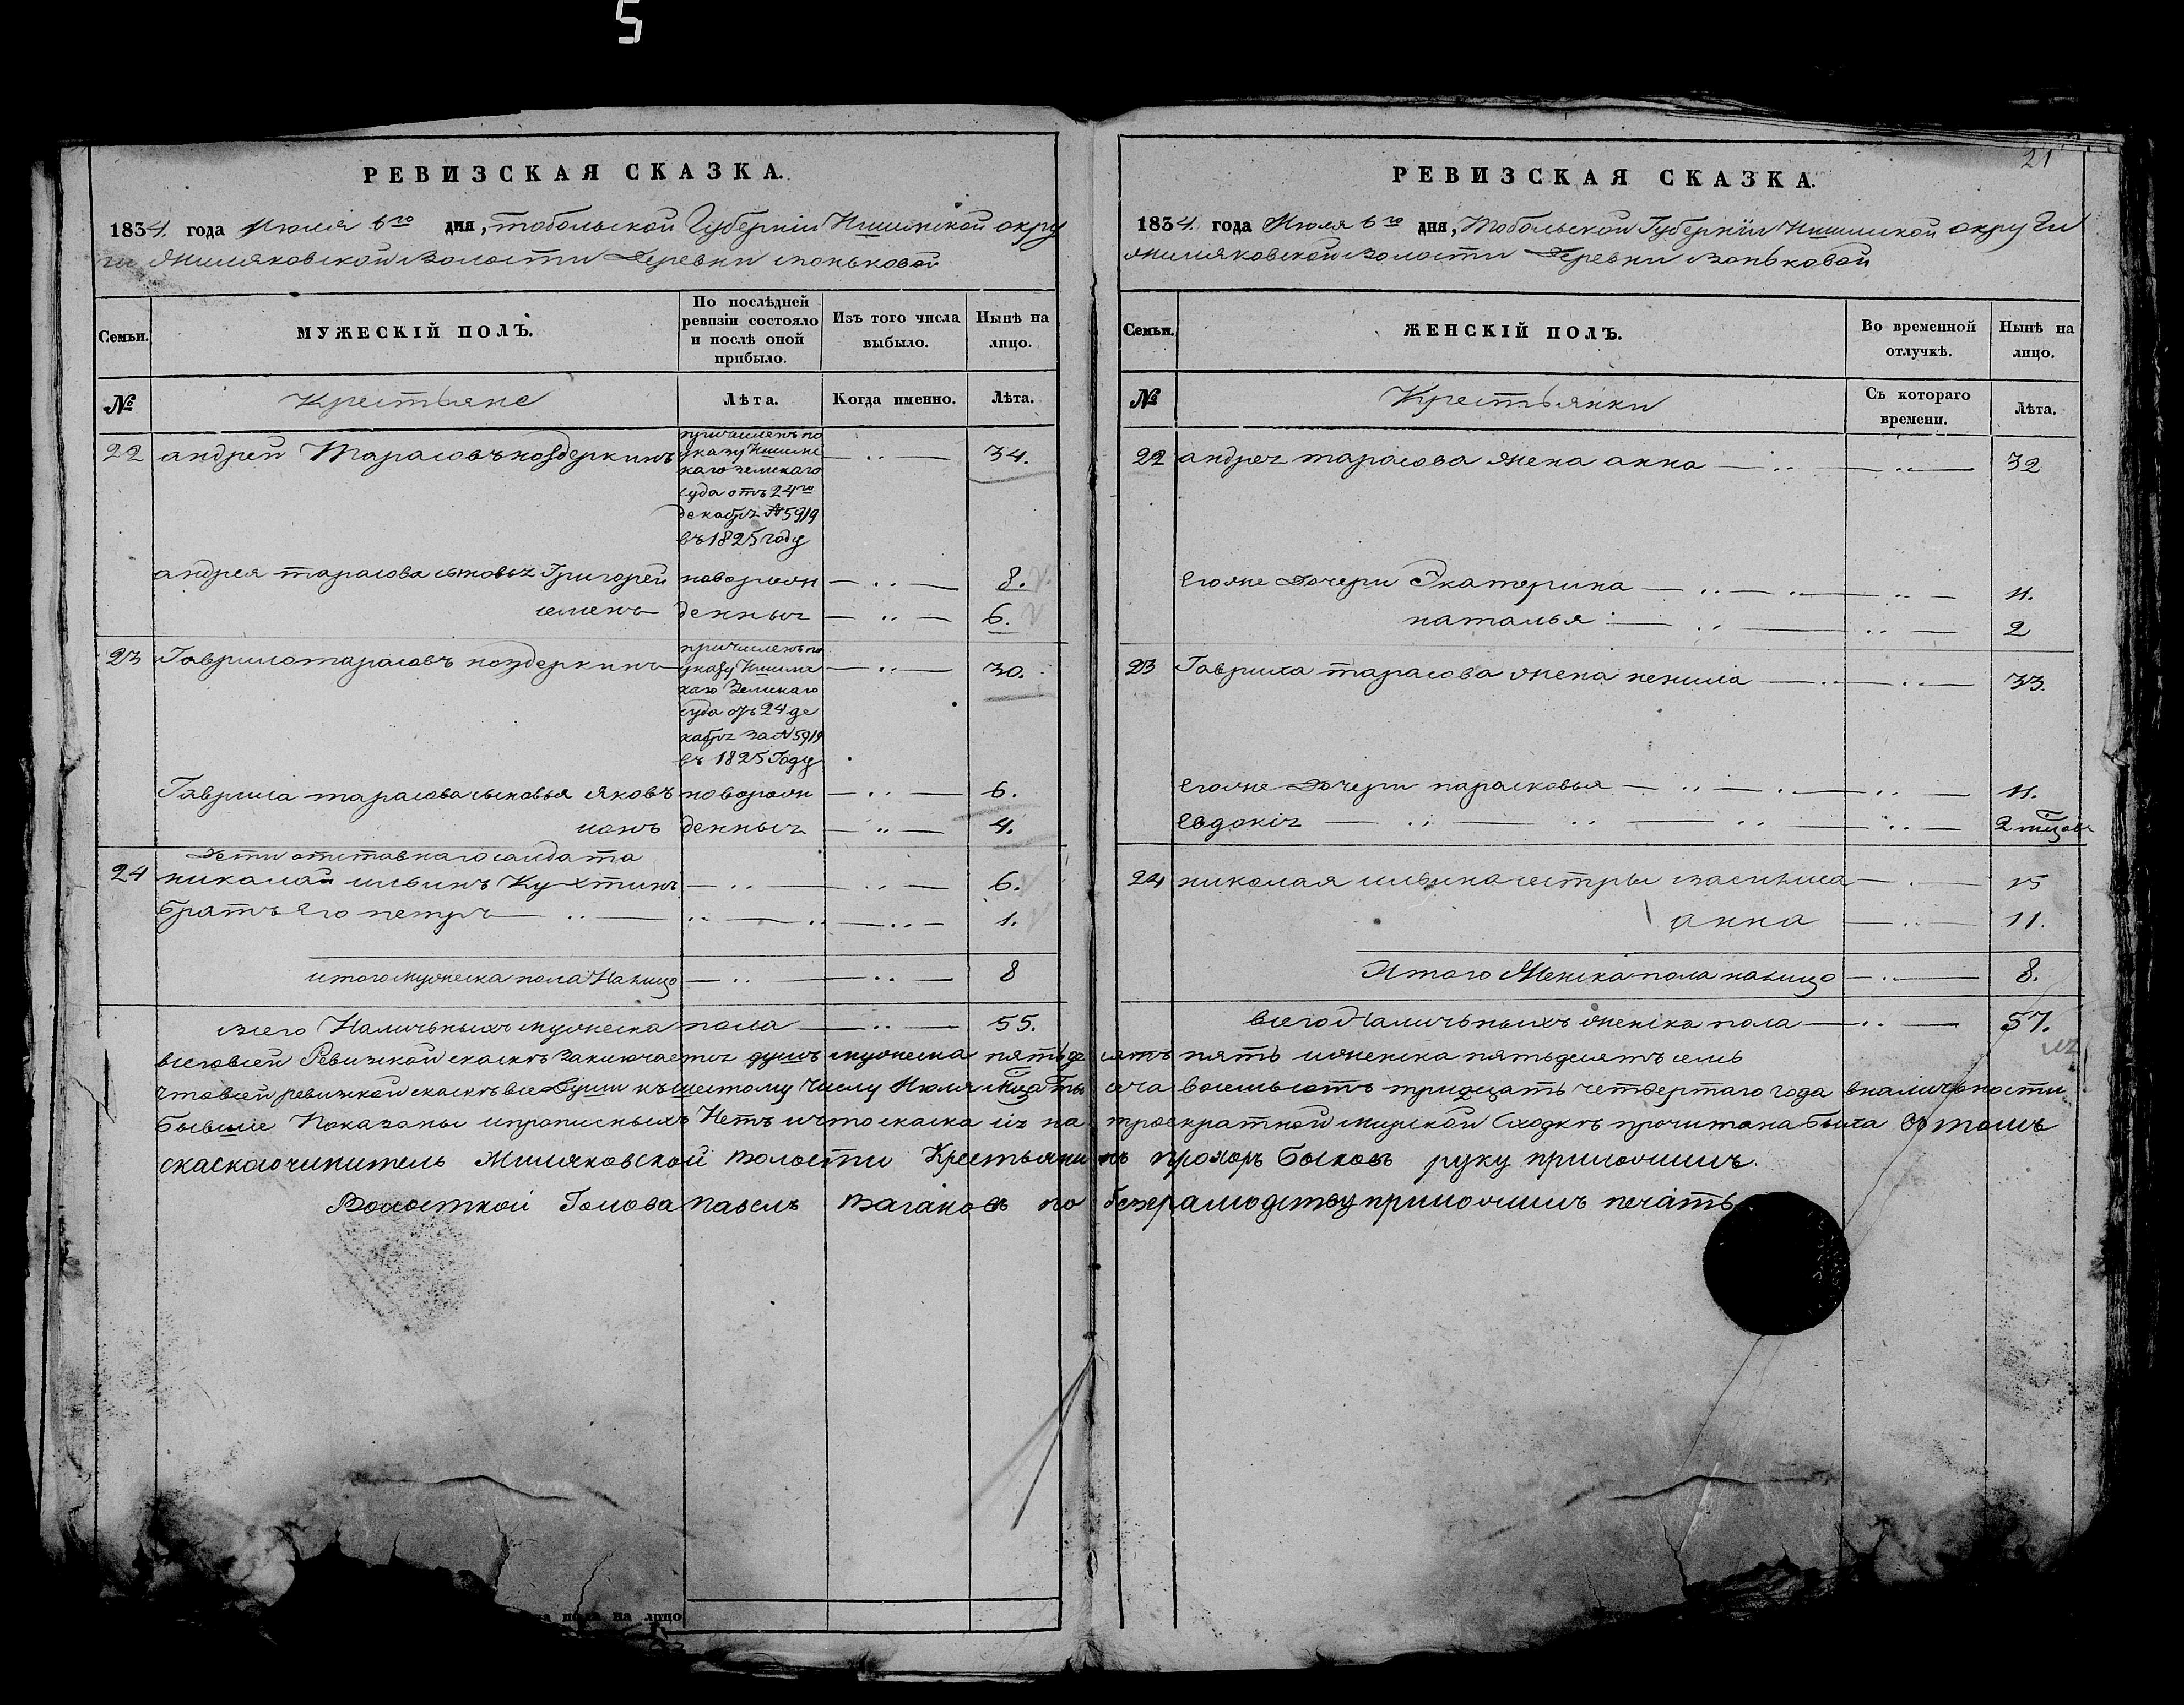 5
21
РЕВИЗСКАЯ СКАЗКА.
1834. года Июля 6го дня, тобольской Губернiи Ишимской окру
ги Жиляковской Волости Деревни
Семьи. МУЖЕСКIЙ ПОЛЪ. По послѣдней ревизiи состояло и послѣ оной прибыло. Изъ того числа выбыло. Нынѣ на лицо.
№ Крестьяне Лѣта. Когда именно. Лѣта.
22 андрей Тарасовъ ноздеркинъ причисленъ по 34.
указу Ишимс
каго земскаго
суда отъ 24го
декабря №5919
въ 1825 году
андрея тарасова сыновья Григорей новорож 8.
семенъ денныя 6.
23 Гаврило тарасовъ ноздеркинъ причисленъ по 30.
указу Ишимс
каго Земскаго
суда отъ 24 де
кабря за №5919
въ 1825 Году
Гаврила тарасова сыновья яковъ новорож 6.
ионъ денныя 4.
Дети отставнаго салдата
24 николай ильинъ 6.
братъ Его петръ 1.
итого мужеска пола На лицо 8
всего Наличьныхъ мужеска пола 55.
РЕВИЗСКАЯ СКАЗКА.
1834. года Июля 6го дня, Тобольской Губернiи Ишимской округи
Жиляковской волости Деревни
Семьи. ЖЕНСКIЙ ПОЛЪ. Во временной отлучкѣ. Нынѣ на лицо.
№ Крестьянки Съ котораго времени. Лѣта.
22 андрея тарасова жена анна 32
Егоже Дочери Екатерина 11.
наталья 2
23 Гаврила тарасова жена ненила 33.
Егоже Дочери парасковья 11.
Евдокiя 2
24 николая ильина сестры василиса 15
анна 11.
Итого Женска пола налицо 8.
всего Наличьныхъ женска пола 57.
всего всей Ревизкой скаскѣ Заключается душъ мужеска пятьде сятъ пять иженска пятьдесятъ семь
что всей ревизкой скаскѣ все Души къ шестому Числу Июля Мца Ты сяча восемьсотъ тридцать четвертаго года в наличьности
бывшiе Показаны ипрописныхъ Нетъ ичто скаска iя на троекратной мирской Сходкѣ прочитана была Втомъ
скаскосочинитель Жиляковской волости Крестьяни нъ прохоръ Быковъ руку приложилъ.
Волостной Голова павелъ Ваганов по безграмодству приложилъ печать
на пола на лицо